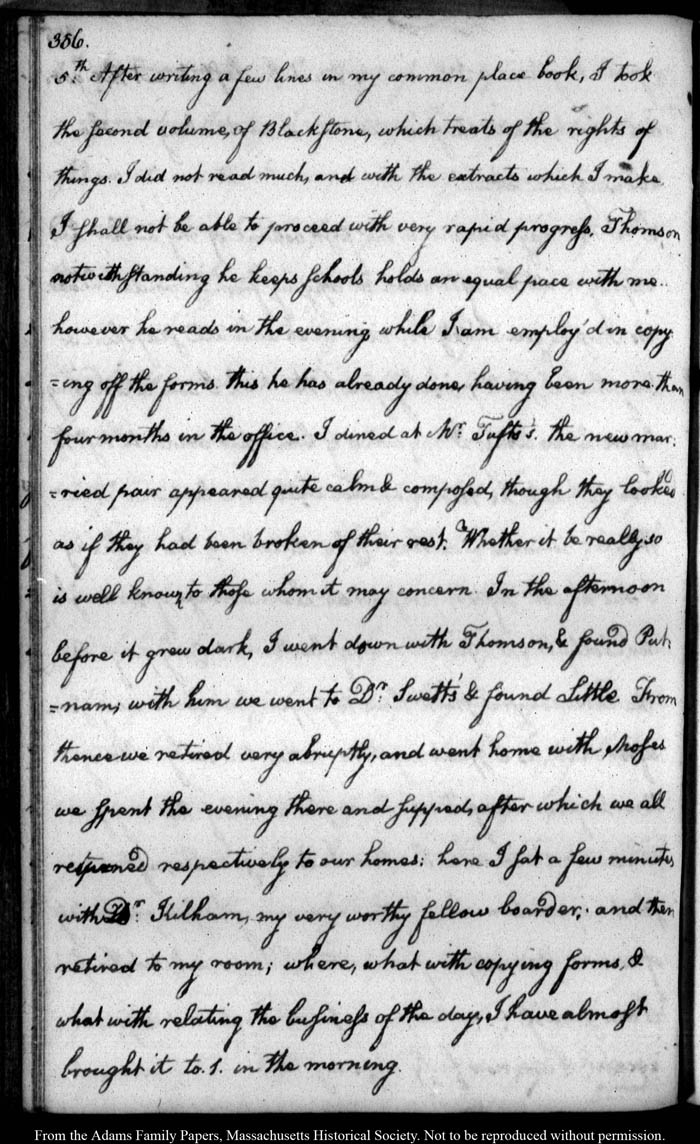 356.
5.th After writing a few lines in my common place book, I took
the second volume, of Blackstone, which treats of the rights of
things. I did not read much, and with the extracts which I make
I shall not be able to proceed with very rapid progress. Thomson
notwithstanding he keeps schools holds an equal pace with me..
however he reads in the evening, while I am employ'd in copy
=ing off the forms. this he has already done, having been more than
four months in the office. I dined at Mr. Tufts's. the new mar:
=ried pair appeared quite calm & composed, though they looked
as if they had been broken of their rest. Whether it be really so
is well known to those whom it may concern. In the afternoon
before it grew dark, I went down with Thomson, & found Put:
=nam; with him we went to Dr. Swett's & found Little. From
thence we retired very abruptly, and went home with Moses
we spent the evening there and supped, after which we all
returned respectively to our homes: here I sat a few minutes
with Dr. Kilham, my very worthy fellow boarder; and then
retired to my room; where, what with copying forms, &
what with relating the business of the day, I have almost
brought it to. 1. in the morning.
From the Adams Family Papers, Massachusetts Historical Society. Not to be reproduced without permission.